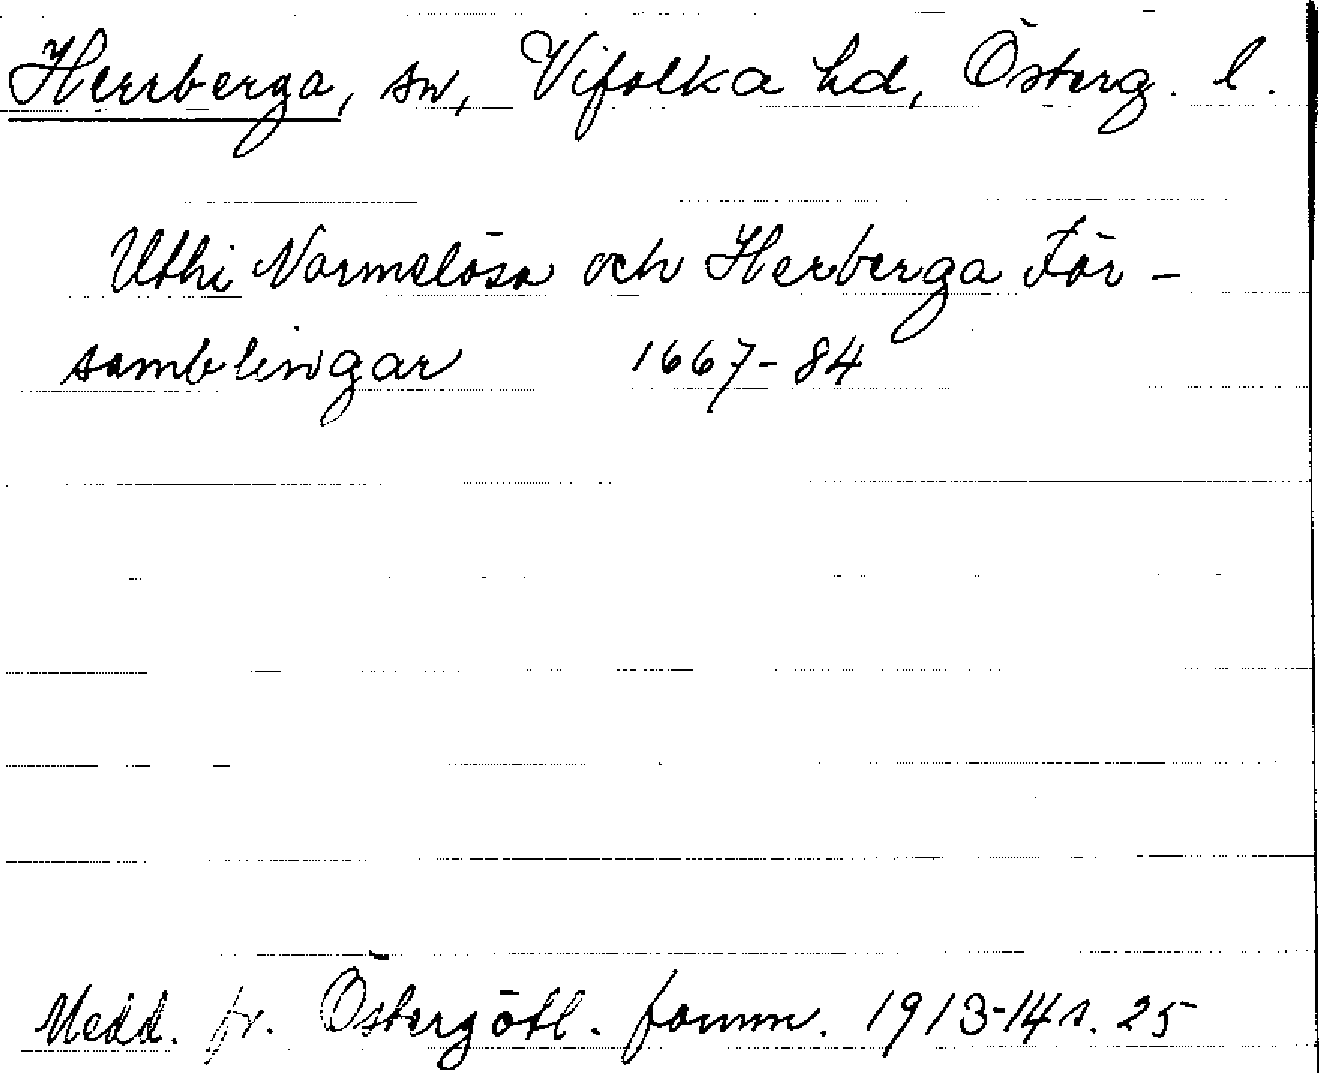 Herrberga, sn, Vifolka hd, Österg. l.
Uthi Normelösa och Herberga För-
samblingar 1667-84
Medd. fr. Östergötl. fornm. 1913-14 s. 25